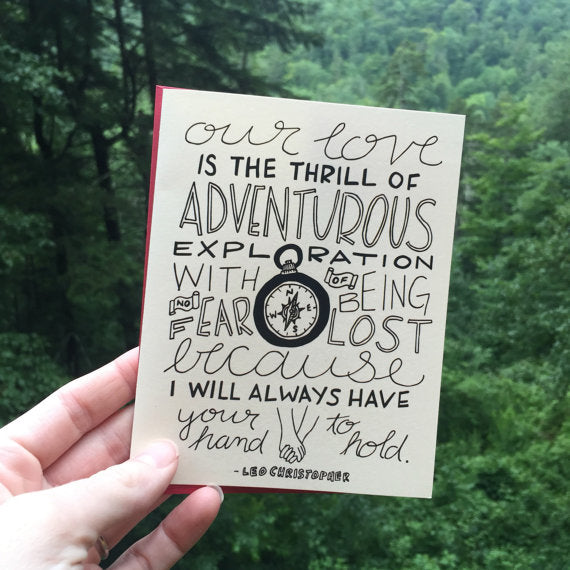 our love
IS THE THRILL OF
ADVENTUROUS
EXPLORATION
WITH NO FEAR OF BEING LOST
N E S W
because
I WILL ALWAYS HAVE
your hand to hold.
- LEO CHRISTOPHER